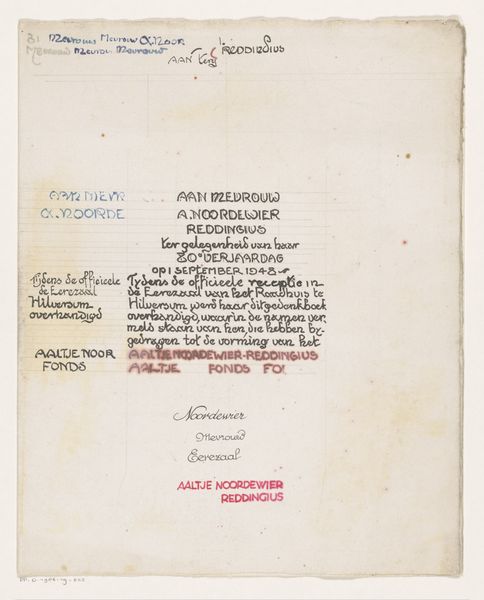 Mevrouw Mevrouw A. Noor
REDDINGIUS
Mevrouw Mevrouw
AAN
AAN MEVR
AAN MEVROUW
A. NOORDE
A. NOORDEWIER
REDDINGIUS
ter gelegenheid van haar
80e VERJAARDAG
op 1 SEPTEMBER 1948
Tijdens de officieele
Tijdens de officieele receptie in
de Eerezaal
de Eerezaal van het Raadhuis te
Hilversum
Hilversum werd haar dit gedenkboek
overhandigd
overhandigd, waarin de namen ver-
meld staan van hen, die hebben bij-
gedragen tot de vorming van het
AALTJE NOOR
AALTJE NOORDEWIER-REDDINGIUS
FONDS
AALTJE FONDS FO
Noordewier
Mevrouw
Eerezaal
AALTJE NOORDEWIER
REDDINGIUS